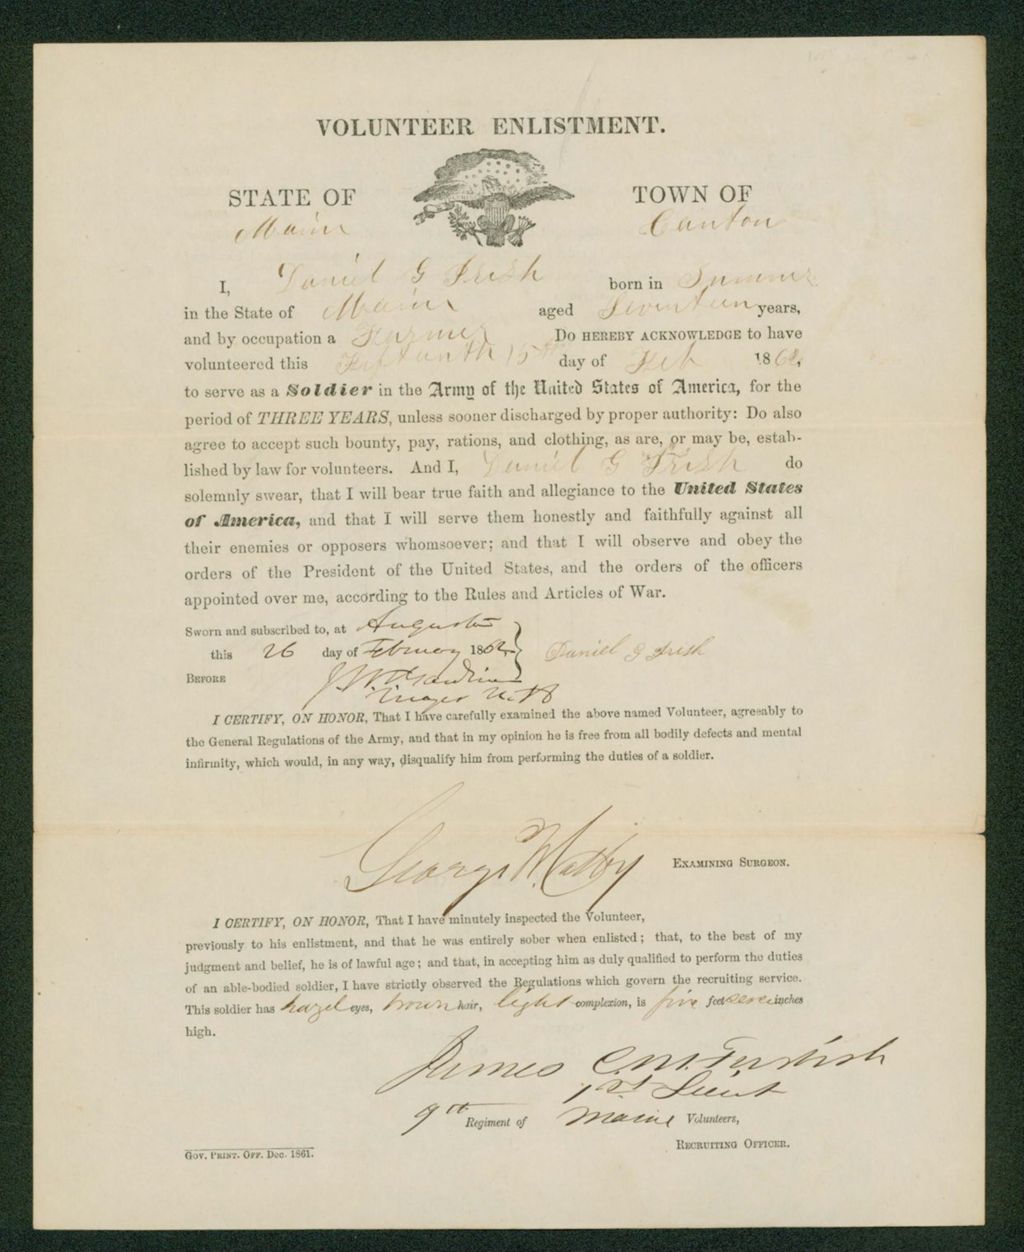 VOLUNTEER ENLISTMENT.
STATE OF TOWN OF
Maine Canton
I, Daniel G Irish born in Sumner
in the State of Maine aged Seventeen years,
and by occupation a Farmer Do HEREBY ACKNOWLEDGE to have
volunteered this 15th day of Feb 1862,
to serve as a Soldier in the Army of the United States of America, for the
period of THREE YEARS, unless sooner discharged by proper authority: Do also
agree to accept such bounty, pay, rations, and clothing, as are, or may be, estab-
lished by law for volunteers. And I, Daniel G Irish do
solemnly swear, that I will bear true faith and allegiance to the United States
of America, and that I will serve them honestly and faithfully against all
their enemies or opposers whomsoever; and that I will observe and obey the
orders of the President of the United States, and the orders of the officers
appointed over me, according to the Rules and Articles of War.
Sworn and subscribed to, at Augusta
this 26 day of February 1862 Daniel G Irish
BEFORE
I CERTIFY, ON HONOR, That I have carefully examined the above named Volunteer, agreeably to
the General Regulations of the Army, and that in my opinion he is free from all bodily defects and mental
infirmity, which would, in any way, disqualify him from performing the duties of a soldier.
George EXAMINING SURGEON.
I CERTIFY, ON HONOR, That I have minutely inspected the Volunteer,
previously to his enlistment, and that he was entirely sober when enlisted; that, to the best of my
judgment and belief, he is of lawful age; and that, in accepting him as duly qualified to perform the duties
of an able-bodied soldier, I have strictly observed the Regulations which govern the recruiting service.
This soldier has hazel eyes, brown hair, light complexion, is five feet seven inches
high.
James
1st Lieut
9th Regiment of Maine Volunteers,
RECRUITING OFFICER.
GOV. PRINT. OFF. Dec. 1861.